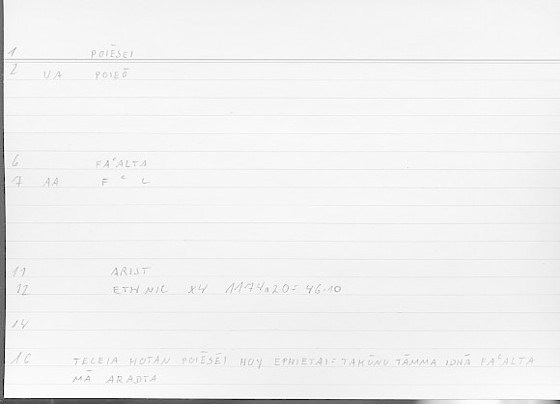 1 POIĒSEI
2 VA POIEŌ
6 FAʿALTA
7 AA F ʿ L
11 ARIST
12 ETH NIC X4 1174a20 = 46.10
14
16 TELEIA HOTAN POIĒSĒI HOY EPHIETAI = TAKŪNU TĀMMA IDHĀ FAʿALTA
MĀ ARADTA